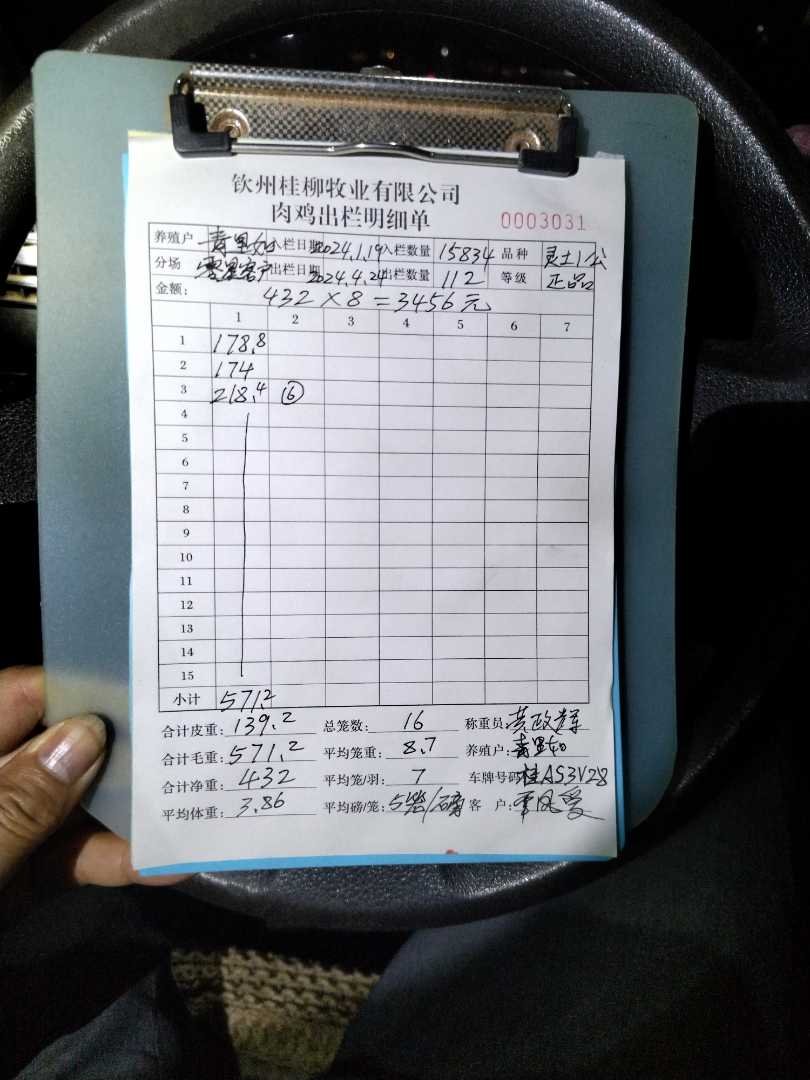 钦州桂柳牧业有限公司
肉鸡出栏明细单 0003031
养殖户 入栏日期 2024.1.19 入栏数量 15834 品种 灵土1公
分场 零星客户 出栏日期 2024.4.24 出栏数量 112 等级 正品
金额: 432×8=3456元
1 2 3 4 5 6 7
1 178.8
2 174
3 218.4 ⑥
4
5
6
7
8
9
10
11
12
13
14
15
小计 571.2
合计皮重: 139.2 总笼数: 16 称重员:
合计毛重: 571.2 平均笼重: 8.7 养殖户:
合计净重: 432 平均笼/羽: 7 车牌号码: 桂AS3V28
平均体重: 3.86 平均磅/笼: 5 客 户: